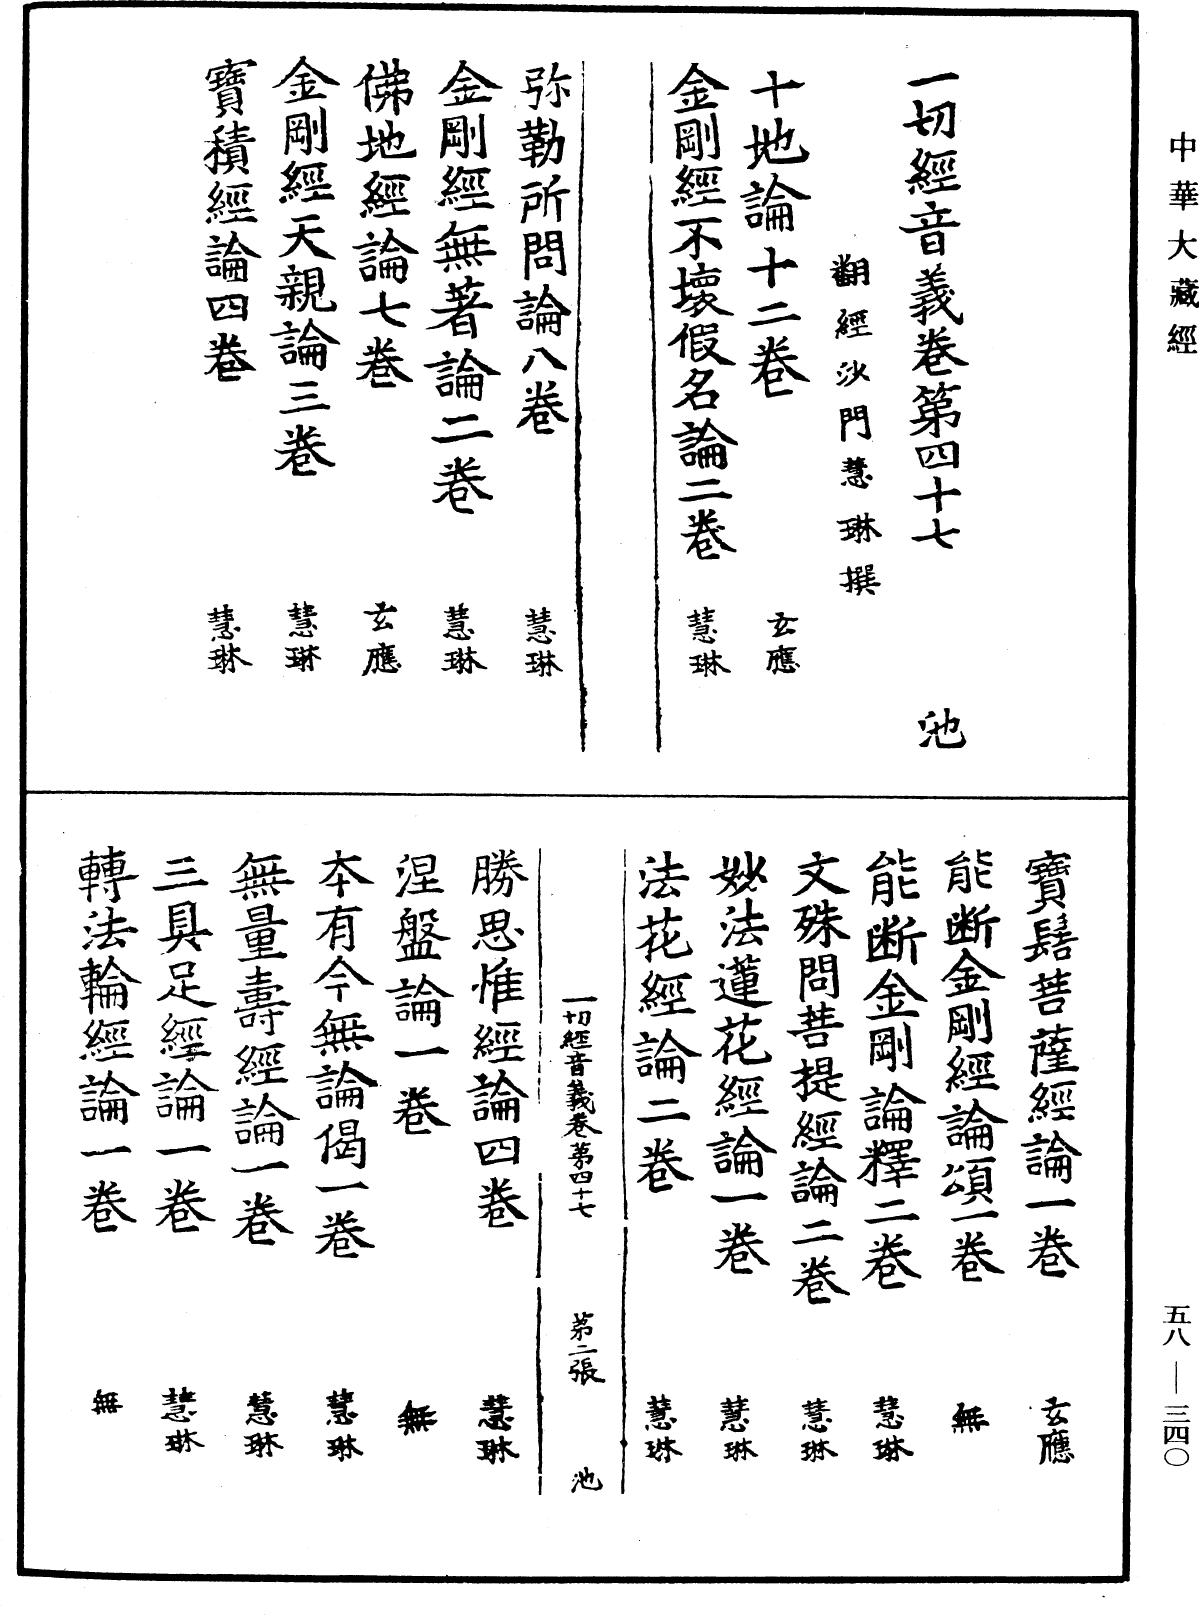 中華大藏經
一切經音義卷第四十七 池
翻經沙門慧琳撰
十地論十二卷 玄應
金剛經不壞假名論二卷 慧琳
弥勒所問論八卷 慧琳
金剛經無著論二卷 慧琳
佛地經論七卷 玄應
金剛經天親論三卷 慧琳
寶積經論四卷 慧琳
寶髻菩薩經論一卷 玄應
能断金剛經論頌一卷 無
能断金剛論釋二卷 慧琳
文殊問菩提經論二卷 慧琳
妙法蓮花經論一卷 慧琳
法花經論二卷 慧琳
一切經音義卷第四十七 第二張 池
勝思惟經論四卷 慧琳
涅盤論一卷 無
本有今無論偈一卷 慧琳
無量壽經論一卷 慧琳
三具足經論一卷 慧琳
轉法輪經論一卷 無
五八—三四〇